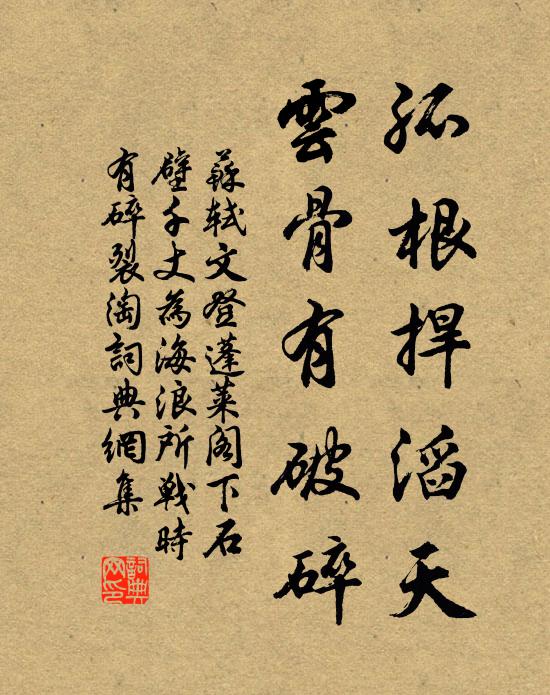 孤根捍滔天
雲骨有破碎
蘇軾文登蓬萊阁下石
壁千丈為海浪所戰時
有碎裂淘詞典網集
詞典网印